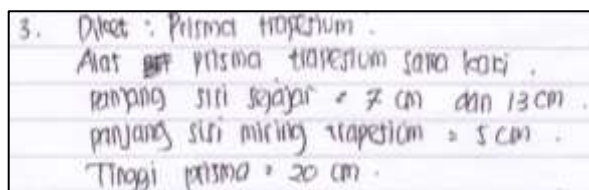 3. Diket : Prisma trapesium.
Alas prisma trapesium sama kaki.
panjang sisi sejajar = 7 cm dan 13 cm.
panjang sisi miring trapesium = 5 cm.
Tinggi prisma = 20 cm.